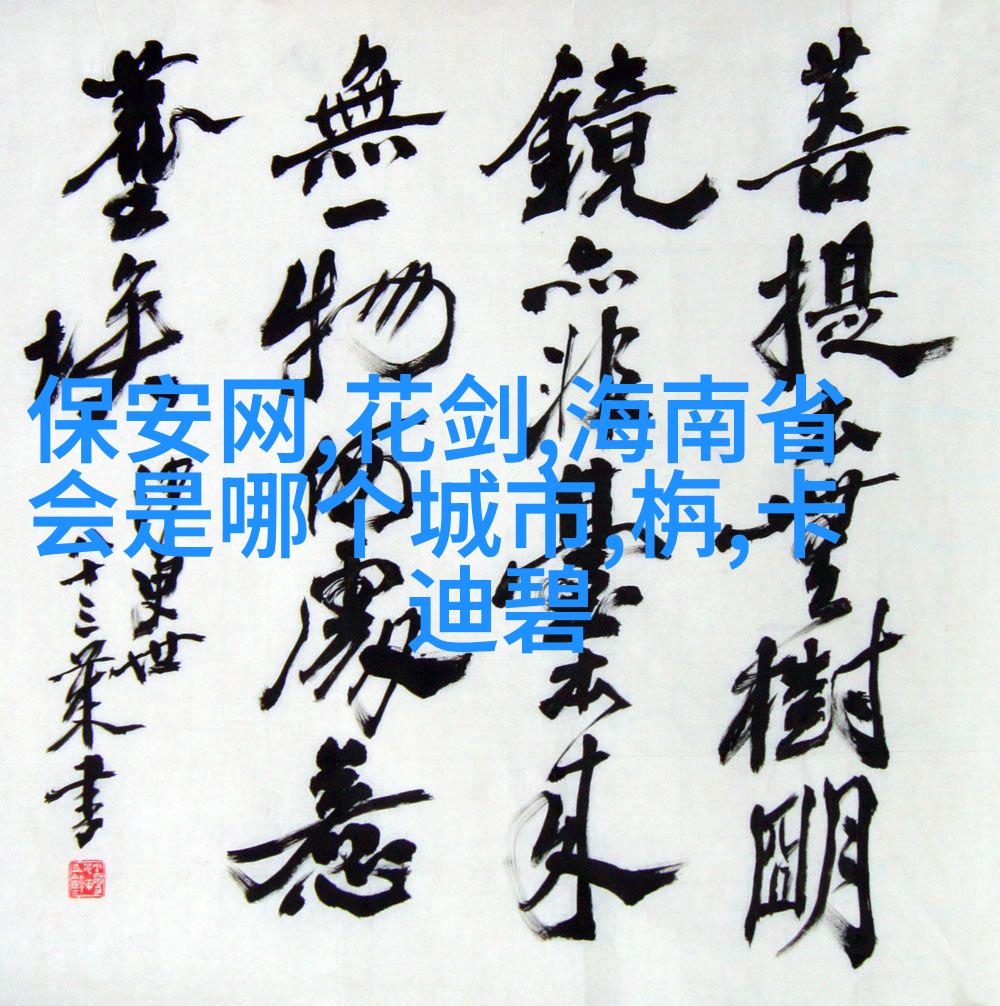 菩提本無樹明
鏡亦非臺本來
無一物何處惹
塵埃
十三葉書
保安网,花剑,海南省
会是哪个城市,栴,卡
迪碧